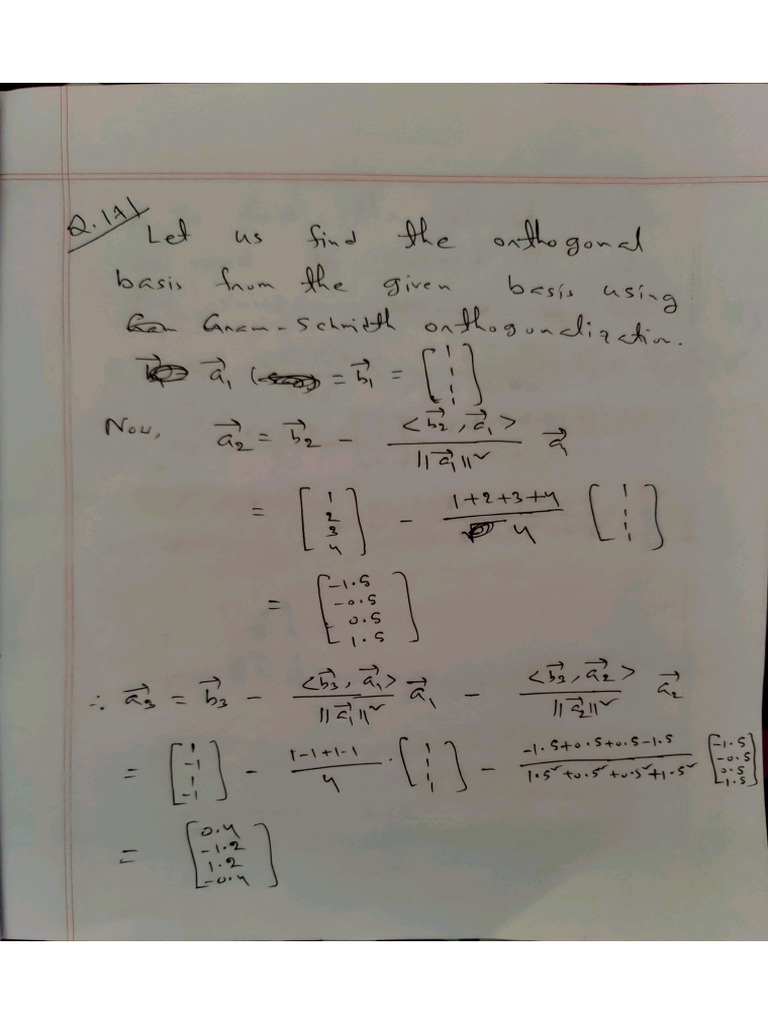 Q.1A)
Let us find the orthogonal
basis from the given basis using
Gram-Schmidth orthogonalization.
a⃗₁ = b⃗₁ = [1 1 1 1]
Now, a⃗₂ = b⃗₂ - <b⃗₂, a⃗₁> / ||a⃗₁||² a⃗₁
= [1 2 3 4] - (1+2+3+4)/4 [1 1 1 1]
= [-1.5 -0.5 0.5 1.5]
∴ a⃗₃ = b⃗₃ - <b⃗₃, a⃗₁> / ||a⃗₁||² a⃗₁ - <b⃗₃, a⃗₂> / ||a⃗₂||² a⃗₂
= [1 -1 1 -1] - (1-1+1-1)/4 · [1 1 1 1] - (-1.5+0.5+0.5-1.5)/(1.5²+0.5²+0.5²+1.5²) [-1.5 -0.5 0.5 1.5]
= [0.4 -1.2 1.2 -0.4]